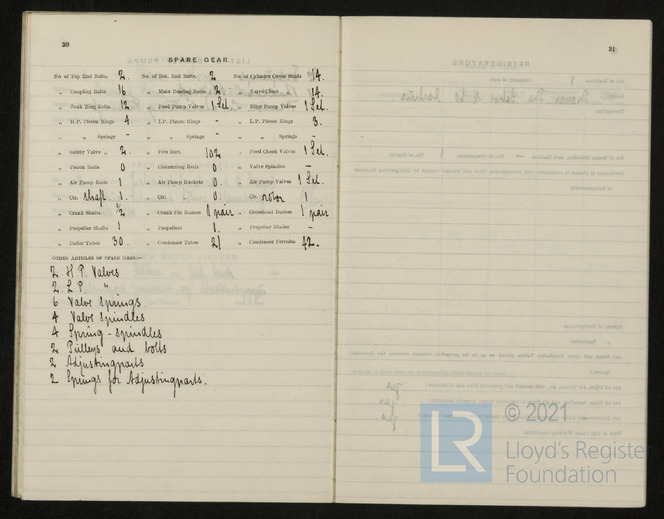 30
SPARE GEAR.
No. of Top End Bolts. 2. No. of Bot. End Bolts. 2 No. of Cylinder Cover Studs 14.
„ Coupling Bolts 16 „ Main Bearing Bolts 2 „ Valve Chest „ 14.
„ Junk Ring Bolts 12 „ Feed Pump Valves 1 Set. „ Bilge Pump Valves 1 Set.
„ H.P. Piston Rings 4 „ I.P. Piston Rings - „ L.P. Piston Rings 3.
„ „ Springs - „ „ Springs - „ „ Springs -
„ Safety Valve „ 2. „ Fire Bars 102 „ Feed Check Valves 1 Set.
„ Piston Rods 0 „ Connecting Rods 0 „ Valve Spindles -
„ Air Pump Rods 1 „ Air Pump Buckets 0. „ Air Pump Valves 1 Set.
„ Cir. shaft 1. „ Cir. 0. „ Cir. rotor 1
„ Crank Shafts 1/2 „ Crank Pin Bushes 1 pair „ Crosshead Bushes 1 pair
„ Propeller Shafts 1 „ Propellers 1. „ Propeller Blades -
„ Boiler Tubes 30 „ Condenser Tubes 21 „ Condenser Ferrules 42.
OTHER ARTICLES OF SPARE GEAR:—
2 H P. Valves
2 L P. „
6 Valve Springs
4 Valve Spindles
4 Spring-spindles
2 Pulleys and bolts
2 Adjustingparts
2 Springs for Adjustingparts.
31
LR
© 2021
Lloyd's Register
Foundation